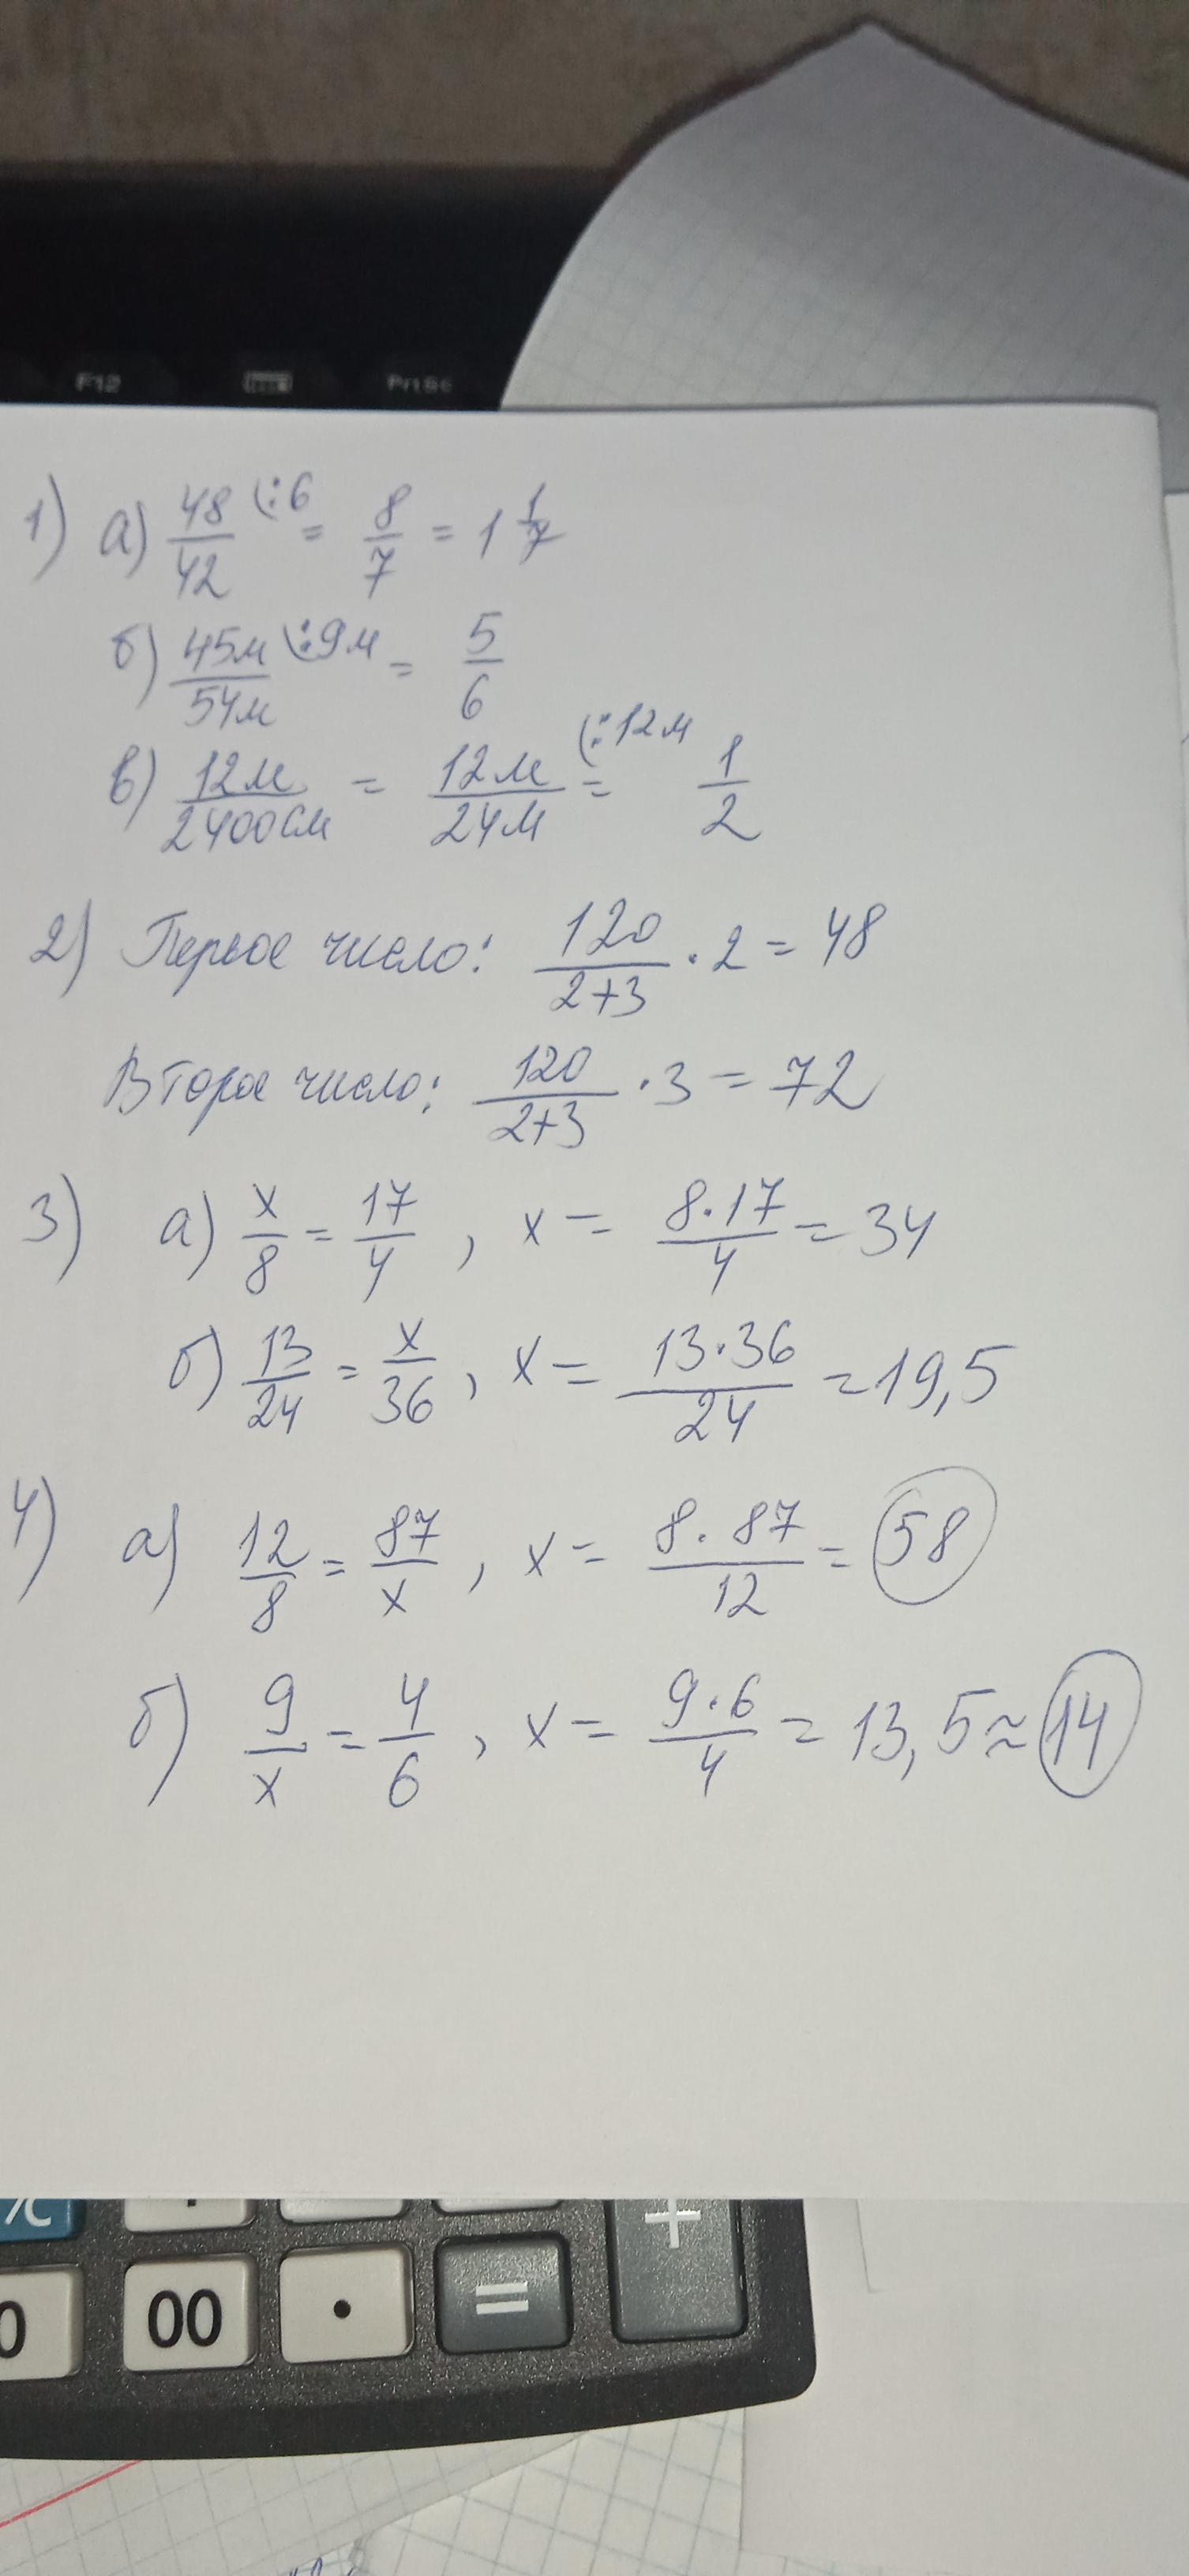 F12 PrtSc
1) а) 48/42 (:6 = 8/7 = 1 1/7
б) 45м/54м (:9м = 5/6
в) 12м/2400см = 12м/24м (:12м = 1/2
2) Первое число: 120/(2+3) · 2 = 48
Второе число: 120/(2+3) · 3 = 72
3) а) x/8 = 17/4, x = 8·17/4 = 34
б) 13/24 = x/36, x = 13·36/24 = 19,5
4) а) 12/8 = 87/x, x = 8·87/12 = 58
б) 9/x = 4/6, x = 9·6/4 = 13,5 ≈ 14
% +
0 00 · =